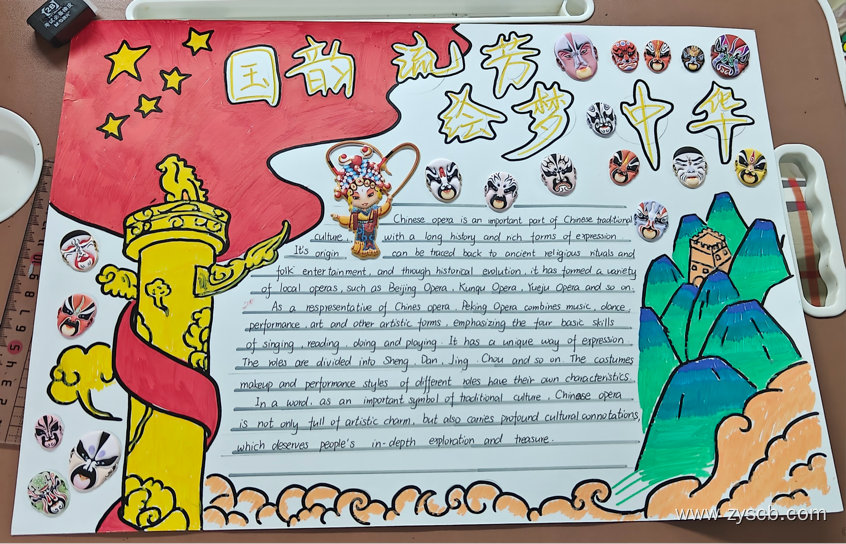 国韵流芳
绘梦中华
Chinese opera is an important part of Chinese traditional
culture, with a long history and rich forms of expression.
It's origin can be traced back to ancient religious rituals and
folk entertainment, and through historical evolution, it has formed a variety
of local operas, such as Beijing Opera, Kunqu Opera, Yueju Opera and so on.
As a respresentative of Chines opera, Peking Opera combines music, dance,
performance, art and other artistic forms, emphasizing the four basic skills
of singing, reading, doing and playing. It has a unique way of expression.
The roles are divided into Sheng, Dan, Jing, Chou and so on. The costumes
makeup and performance styles of different roles have their own characteristics.
In a word, as an important symbol of traditional culture, Chinese opera
is not only full of artistic charm, but also carries profound cultural connotations,
which deserves people's in-depth exploration and treasure.
www.zyscb.com